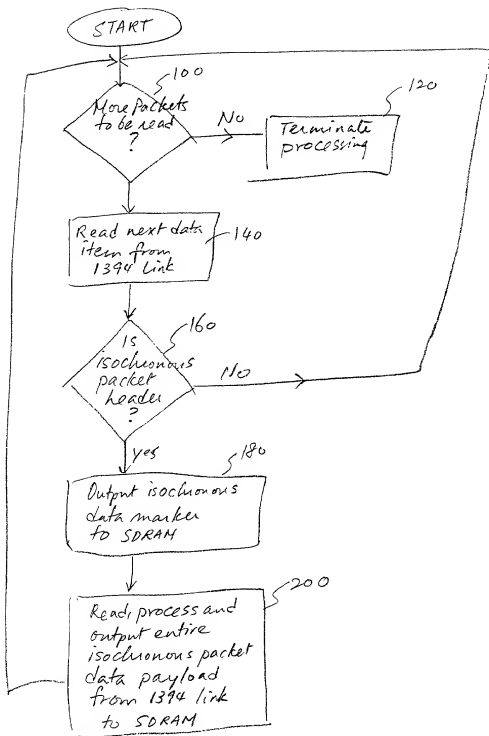 START
100
More Packets
to be read
?
No
120
Terminate
processing
Read next data
item from
1394 Link
140
160
Is
isochronous
packet
header
?
No
yes
180
Output isochronous
data marker
to SDRAM
200
Read, process and
output entire
isochronous packet
data payload
from 1394 link
to SDRAM